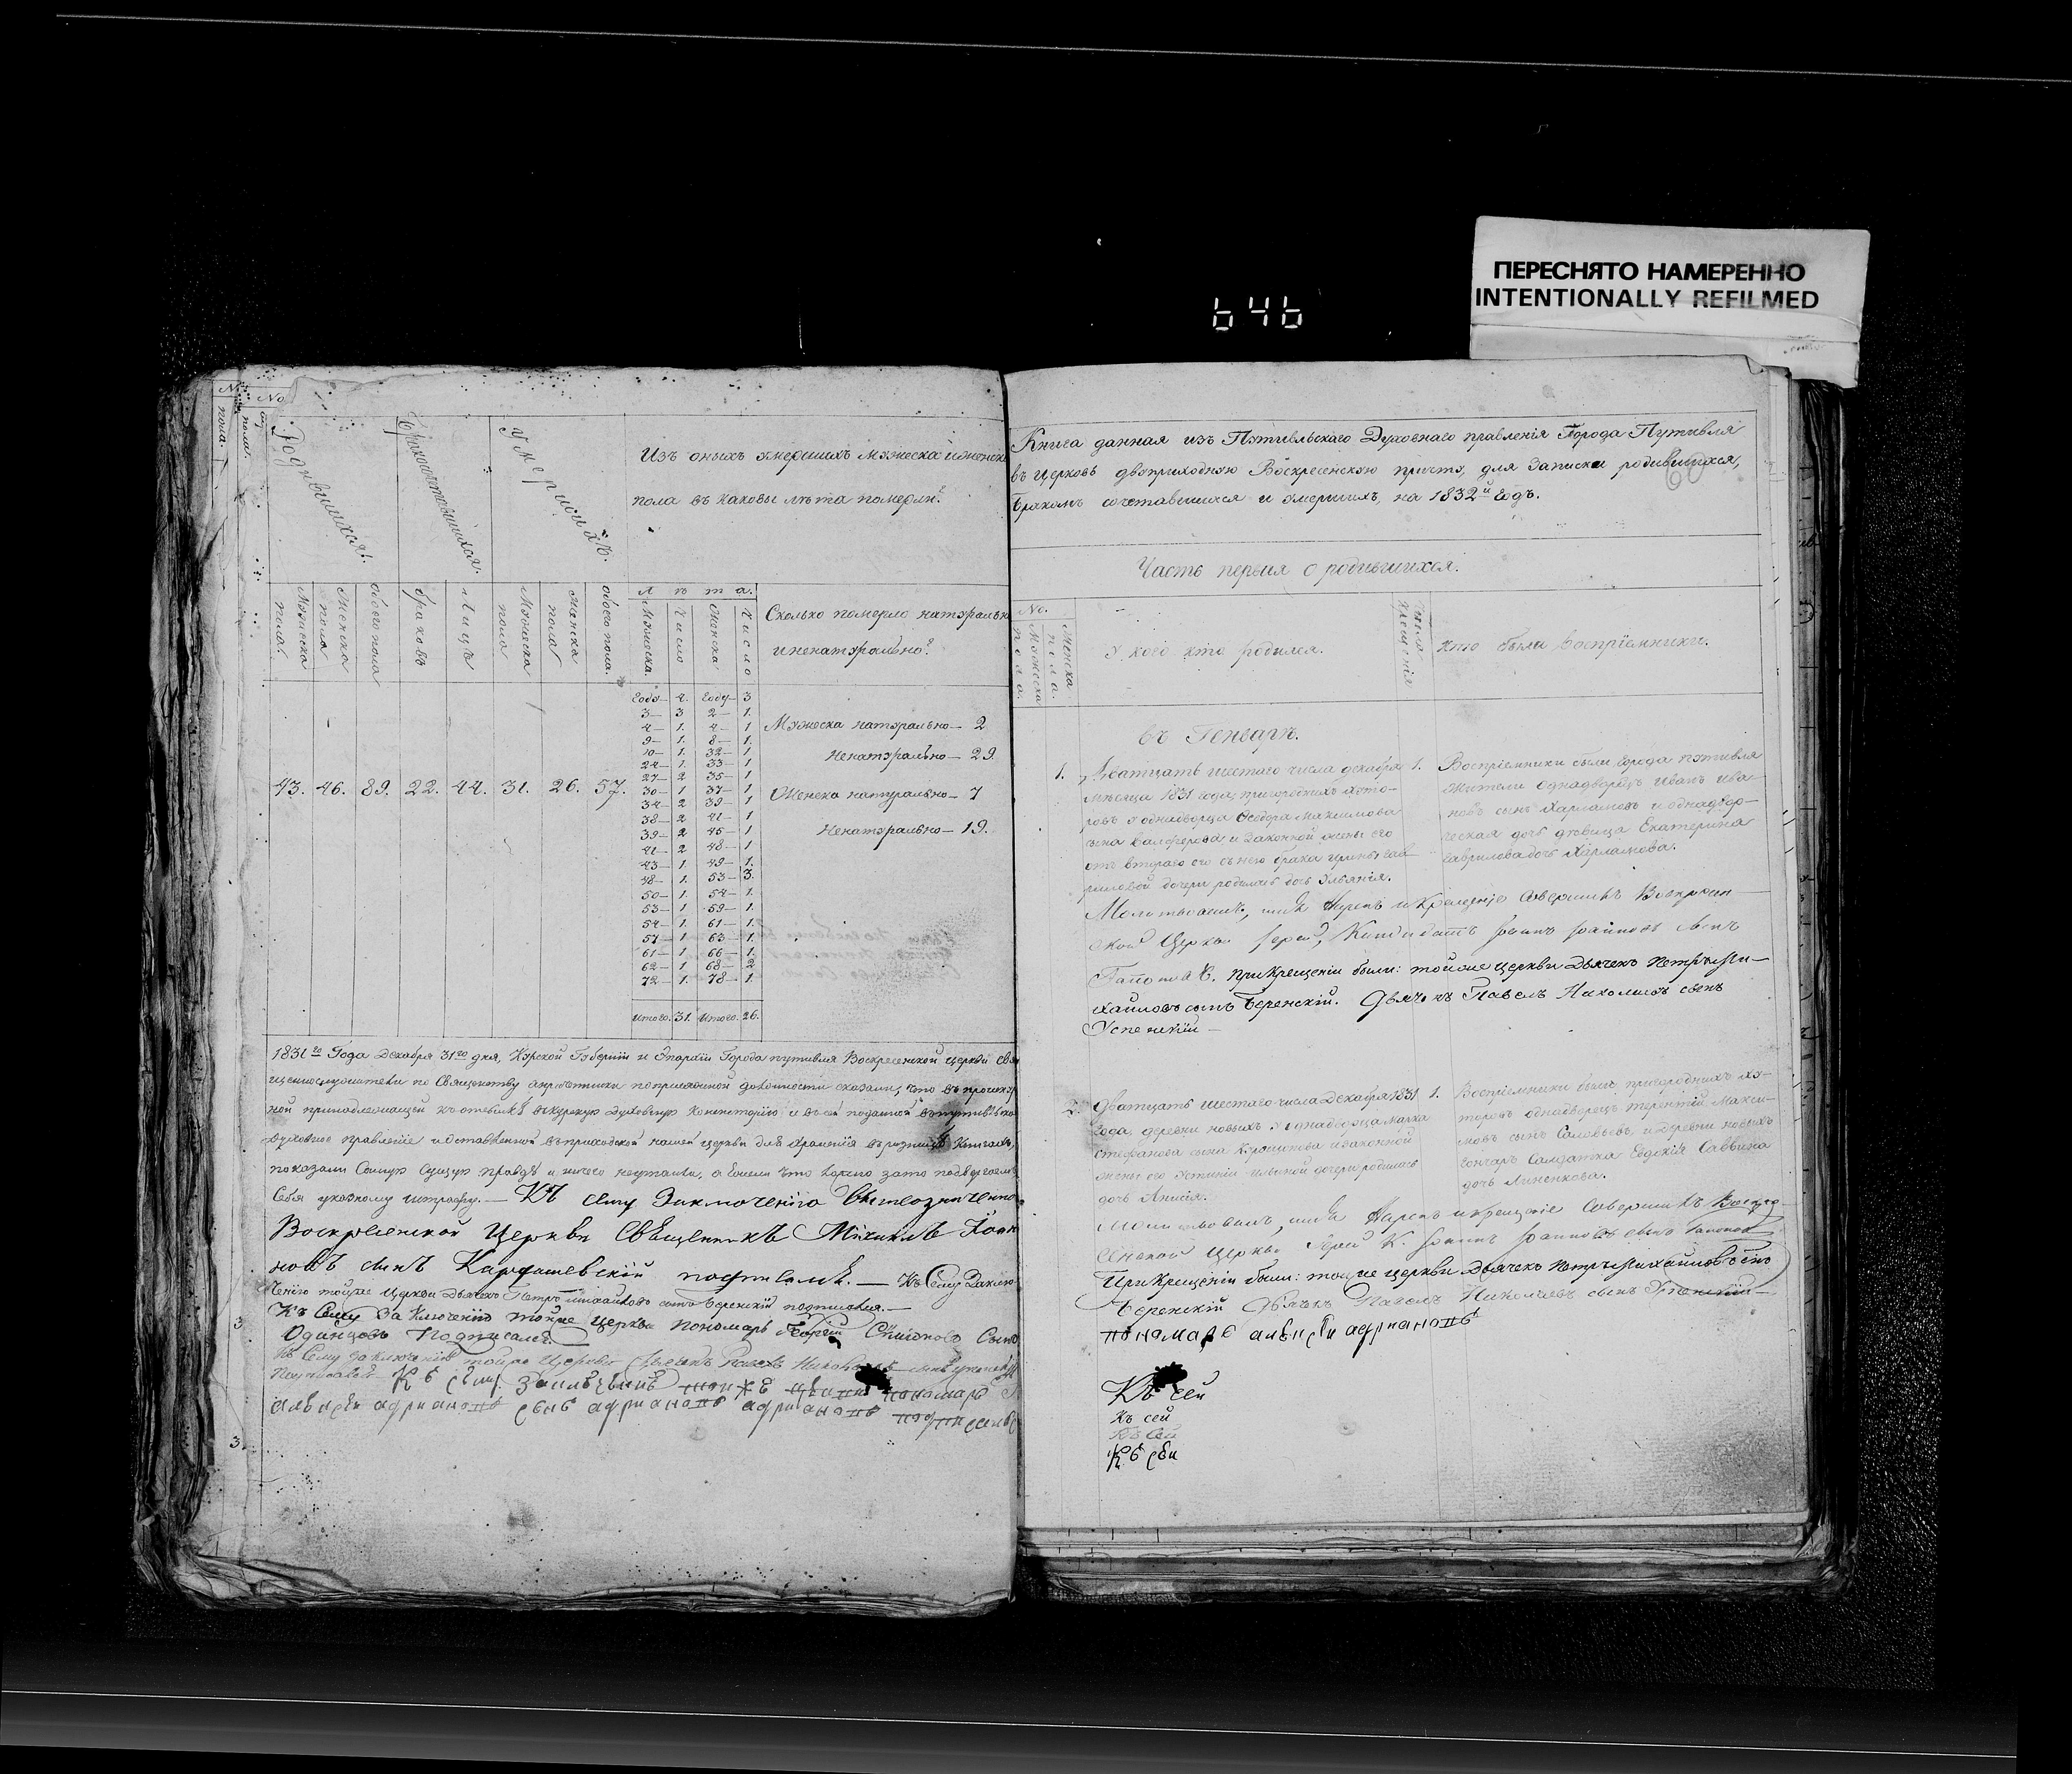 ПЕРЕСНЯТО НАМЕРЕННО
INTENTIONALLY REFILMED
646
No
Родившихся.
Бракосочетавшихся.
Умершихъ.
Изъ оныхъ умершихъ мужеска и женска
пола въ каковы лѣта померли?
Мужеска пола.
Женска пола
Обоего пола
браковъ
лицъ
Мужеска пола
Женска пола
Обоего пола.
Лѣта.
Мужеска.
Число
Женска
Число
Сколько померло натурально
и ненатурально?
Году— 4. Году— 3
3— 3 2— 1.
4— 1. 4— 1
9— 1. 8— 1.
10— 1. 32— 1
24— 1. 33— 1
27— 2 35— 1
30— 1 37— 1
34— 2 39— 1
38— 2 41— 1
39— 2 45— 1
41— 2 48— 1
43— 1. 49— 1.
48— 1. 53— 3.
50— 1. 54— 1.
53— 1. 59— 1.
54— 1. 61— 1.
57— 1. 63— 1.
61— 1. 66— 1.
62— 1. 68— 2
72— 1. 78— 1.
Итого. 31. Итого. 26.
43. 46. 89. 22. 44. 31. 26. 57.
Мужеска натурально— 2
Ненатурально— 29.
Женска натурально— 7
Ненатурально— 19.
1831го Года Декабря 31го дня, Курской Губерніи и Епархіи Города путивля Воскресенской церкви свя
щеннослужители по Священству а причетники по присяжной должности сказали, что въ
духовное правленіе и оставленной въ приходской нашей церкви для храненія въ ризницѣ книгахъ,
показали Самую Сущую правду и ничего неутаили, а Ежели что ложно зато подвергаемъ
Себя указному штрафу.— Къ сему Заключенію
Воскресенской Церкви Священникъ Михаилъ Іоан
новъ сынъ Кардашевскій подписалъ.— Къ Сему Заклю
ченію тойже Церкви Дьячекъ Петръ Михайловъ сынъ Беренскій подписался.—
Къ Сему Заключенію тойже Церкви пономарь Георгій Симоновъ Сынъ
Одинцовъ Подписалъ
Къ Сему заключенію тойже Церкви Дьячекъ Павелъ
Подписался Къ сему пономарь
алексѣи адриановъ сынъ адриановъ адриановъ подписался
Книга данная изъ Путивльскаго Духовнаго правленія Города Путивля
въ Церковь двоприходную Воскресенскую причту, для Записки родившихся,
Бракомъ сочетавшихся и умершихъ, на 1832й Годъ.
60
Часть первая о родившихся.
No.
Мужеска пола.
Женска пола.
У кого кто родился.
Число крещенія
Кто были воспріемники.
въ Генварѣ.
1. Дватцать шестаго числа декабря 1. Воспріемники были города путивля
мѣсяца 1831 года, пригородныхъ хуто— жители однадворецъ Иванъ Ива—
ровъ у однадворца Федора Максимова новъ сынъ Харламовъ и однадвор—
сына и Законной жены его ческая дочь дѣвица Екатерина
отъ втораго его съ нею брака Ирины Гав Гаврилова дочь Харламова.
риловой дочери родилась дочь Ульянія.
Молитвовалъ, имя нарекъ и Крещеніе Совершилъ Воскресен—
ской Церкви Іерей, Кандидатъ Іоаннъ Іоанновъ сынъ
При Крещеніи были: тойже церкви Дьячекъ Петръ Ми—
хайловъ сынъ Беренскій. Дьячекъ Павелъ Николаевъ сынъ
Успенскій—
2. Дватцать шестаго числа Декабря 1831 1. Воспріемники были пригородныхъ ху—
Года, деревни новыхъ у однадворца Марка торовъ однадворецъ терентій Макси—
Стефанова сына и законной мовъ сынъ Соловьевъ, и деревни новыхъ
жены его Устиніи Ильиной дочери родилась Гончаръ Салдатка Евдокія Саввина
дочь Анисія. дочь Линенкова.
Молитвовалъ, имя Нарекъ и крещеніе Совершилъ Воскре
сенской Церкви Іерей К. Іоаннъ Іоанновъ сынъ
При Крещеніи были: тойже церкви Дьячекъ Петръ Михайловъ сынъ
Беренскій Дьячекъ Павелъ Николаевъ сынъ Успенскій—
пономарь алексѣи адриановъ
Къ сей
Къ сей
Къ Сей
Къ сеи